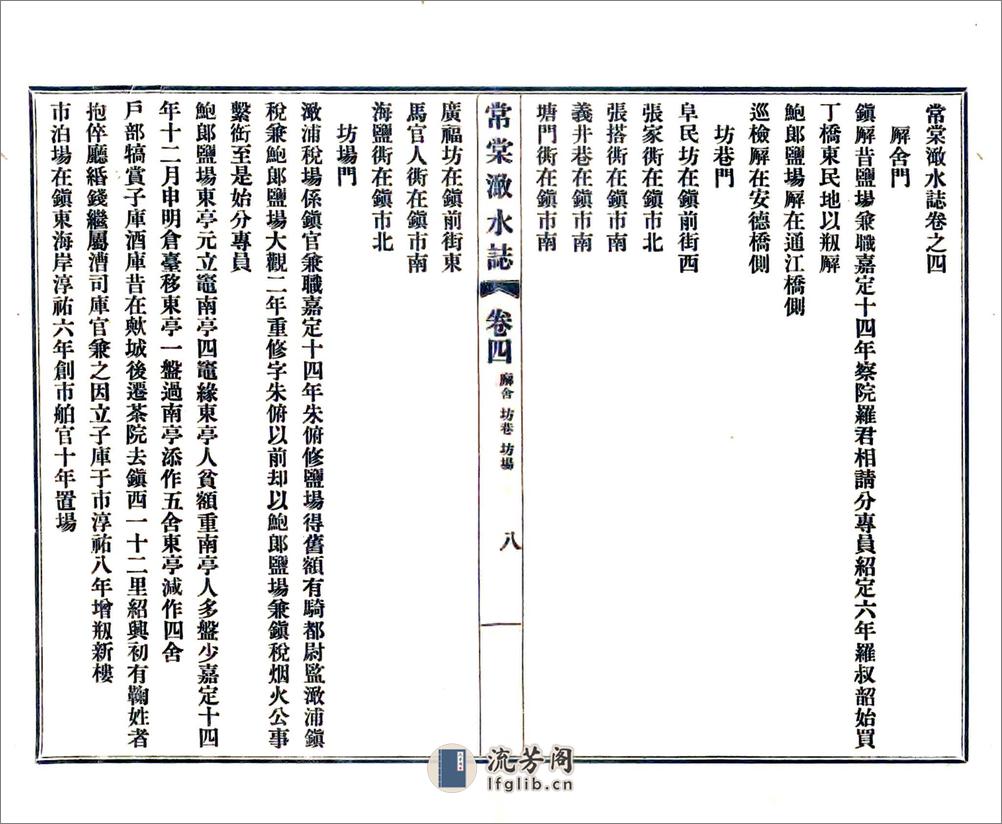 常棠澉水誌卷之四
廨舍門
鎮廨昔鹽場兼職嘉定十四年察院羅君相請分專員紹定六年羅叔韶始買
丁橋東民地以剏廨
鮑郎鹽場廨在通江橋側
巡檢廨在安德橋側
坊巷門
阜民坊在鎮前街西
張家衖在鎮市北
張搭衖在鎮市南
義井巷在鎮市南
塘門衖在鎮市南
常棠澉水誌 卷四 廨舍 坊巷 坊場 八
廣福坊在鎮前街東
馬官人衖在鎮市南
海鹽衖在鎮市北
坊場門
澉浦稅場係鎮官兼職嘉定十四年朱俯修鹽場得舊額有騎都尉監澉浦鎮
稅兼鮑郎鹽場大觀二年重修字朱俯以前却以鮑郎鹽場兼鎮稅烟火公事
繫銜至是始分專員
鮑郎鹽場東亭元立竈南亭四竈緣東亭人貧額重南亭人多盤少嘉定十四
年十二月申明倉臺移東亭一盤過南亭添作五舍東亭減作四舍
戶部犒賞子庫酒庫昔在歟城後遷茶院去鎮西一十二里紹興初有鞠姓者
抱倅廳緡錢繼屬漕司庫官兼之因立子庫于市淳祐八年增剏新樓
市泊場在鎮東海岸淳祐六年創市舶官十年置場
流芳阁
lfglib.cn